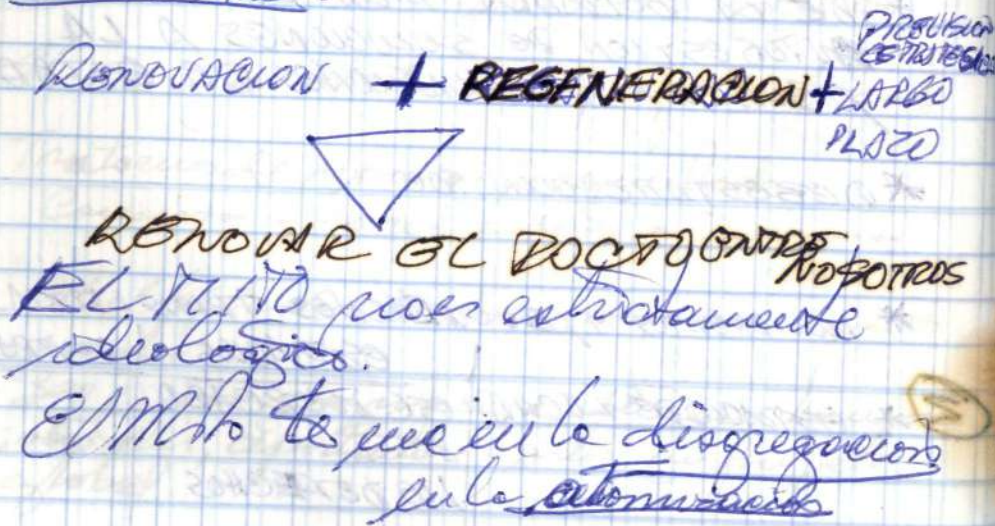 RENOVACION + REGENERACION +
PREVISION
ESTRATEGICA
LARGO
PLAZO
RENOVAR EL PACTO ENTRE
NOSOTROS
EL MITO no es estrictamente
ideológico.
El Mito termina en la disgregación
en la atomización